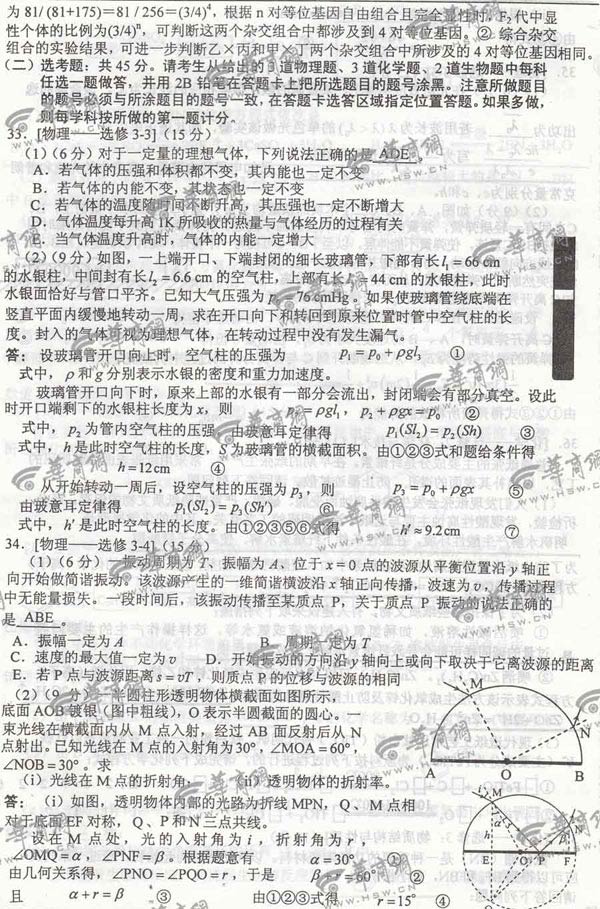 为 81/(81+175)=81/256=(3/4)⁴，根据 n 对等位基因自由组合且完全显性时，F₂代中显
性个体的比例为(3/4)ⁿ，可判断这两个杂交组合中都涉及到 4 对等位基因。② 综合杂交
组合的实验结果，可进一步判断乙×丙和甲×丁两个杂交组合中所涉及的 4 对等位基因相同。
(二) 选考题：共 45 分。请考生从给出的 3 道物理题、3 道化学题、2 道生物题中每科
任选一题做答，并用 2B 铅笔在答题卡上把所选题目的题号涂黑。注意所做题目
的题号必须与所涂题目的题号一致，在答题卡选答区域指定位置答题。如果多做，
则每学科按所做的第一题计分。
35. [物理——选修 3-3] (15 分)
(1)(6 分) 对于一定量的理想气体，下列说法正确的是 ADE 。
A．若气体的压强和体积都不变，其内能也一定不变
B．若气体的内能不变，其状态也一定不变
C．若气体的温度随时间不断升高，其压强也一定不断增大
D．气体温度每升高 1K 所吸收的热量与气体经历的过程有关
E．当气体温度升高时，气体的内能一定增大
(2)(9 分) 如图，一上端开口、下端封闭的细长玻璃管，下部有长 l₁ = 66 cm
的水银柱，中间封有长 l₂ = 6.6 cm 的空气柱，上部有长 l₃ = 44 cm 的水银柱，此时
水银面恰好与管口平齐。已知大气压强为 p₀ = 76 cmHg。如果使玻璃管绕底端在
竖直平面内缓慢地转动一周，求在开口向下和转回到原来位置时管中空气柱的长
度。封入的气体可视为理想气体，在转动过程中没有发生漏气。
答：设玻璃管开口向上时，空气柱的压强为 p₁ = p₀ + ρgl₃ ①
式中，ρ 和 g 分别表示水银的密度和重力加速度。
玻璃管开口向下时，原来上部的水银有一部分会流出，封闭端会有部分真空。设此
时开口端剩下的水银柱长度为 x，则 p₂ = ρgl₁，p₂ + ρgx = p₀ ②
式中，p₂ 为管内空气柱的压强。由玻意耳定律得 p₁(Sl₂) = p₂(Sh) ③
式中，h 是此时空气柱的长度，S 为玻璃管的横截面积。由①②③式和题给条件得
h = 12 cm ④
从开始转动一周后，设空气柱的压强为 p₃，则 p₃ = p₀ + ρgx ⑤
由玻意耳定律得 p₁(Sl₂) = p₃(Sh′) ⑥
式中，h′ 是此时空气柱的长度。由①②③⑤⑥式得 h′ ≈ 9.2cm ⑦
34．[物理——选修 3-4] (15 分)
(1)(6 分) 一振动周期为 T、振幅为 A、位于 x = 0 点的波源从平衡位置沿 y 轴正
向开始做简谐振动。该波源产生的一维简谐横波沿 x 轴正向传播，波速为 v，传播过程
中无能量损失。一段时间后，该振动传播至某质点 P，关于质点 P 振动的说法正确的
是 ABE 。
A．振幅一定为 A B．周期一定为 T
C．速度的最大值一定为 v D．开始振动的方向沿 y 轴向上或向下取决于它离波源的距离
E．若 P 点与波源距离 s = vT，则质点 P 的位移与波源的相同
(2)(9 分) 一半圆柱形透明物体横截面如图所示，
底面 AOB 镀银 (图中粗线)，O 表示半圆截面的圆心。
束光线在横截面内从 M 点入射，经过 AB 面反射后从 N
点射出。已知光线在 M 点的入射角为 30°，∠MOA = 60°，
∠NOB = 30°。求
(i) 光线在 M 点的折射角； (ii) 透明物体的折射率。
答：(i) 如图，透明物体内部的光路为折线 MPN，Q、M 点相
对于底面 EF 对称，Q、P 和 N 三点共线。
设在 M 点处，光的入射角为 i，折射角为 r，
∠OMQ = α，∠PNF = β。根据题意有 α = 30° ①
由几何关系得，∠PNO = ∠PQO = r，于是 β + r = 60° ②
且 α + r = β ③ 由①②③式得 r = 15° ④
M
N
A
O
B
M
N
E
O
P
F
h
α
华育网
WWW.HSW.CN